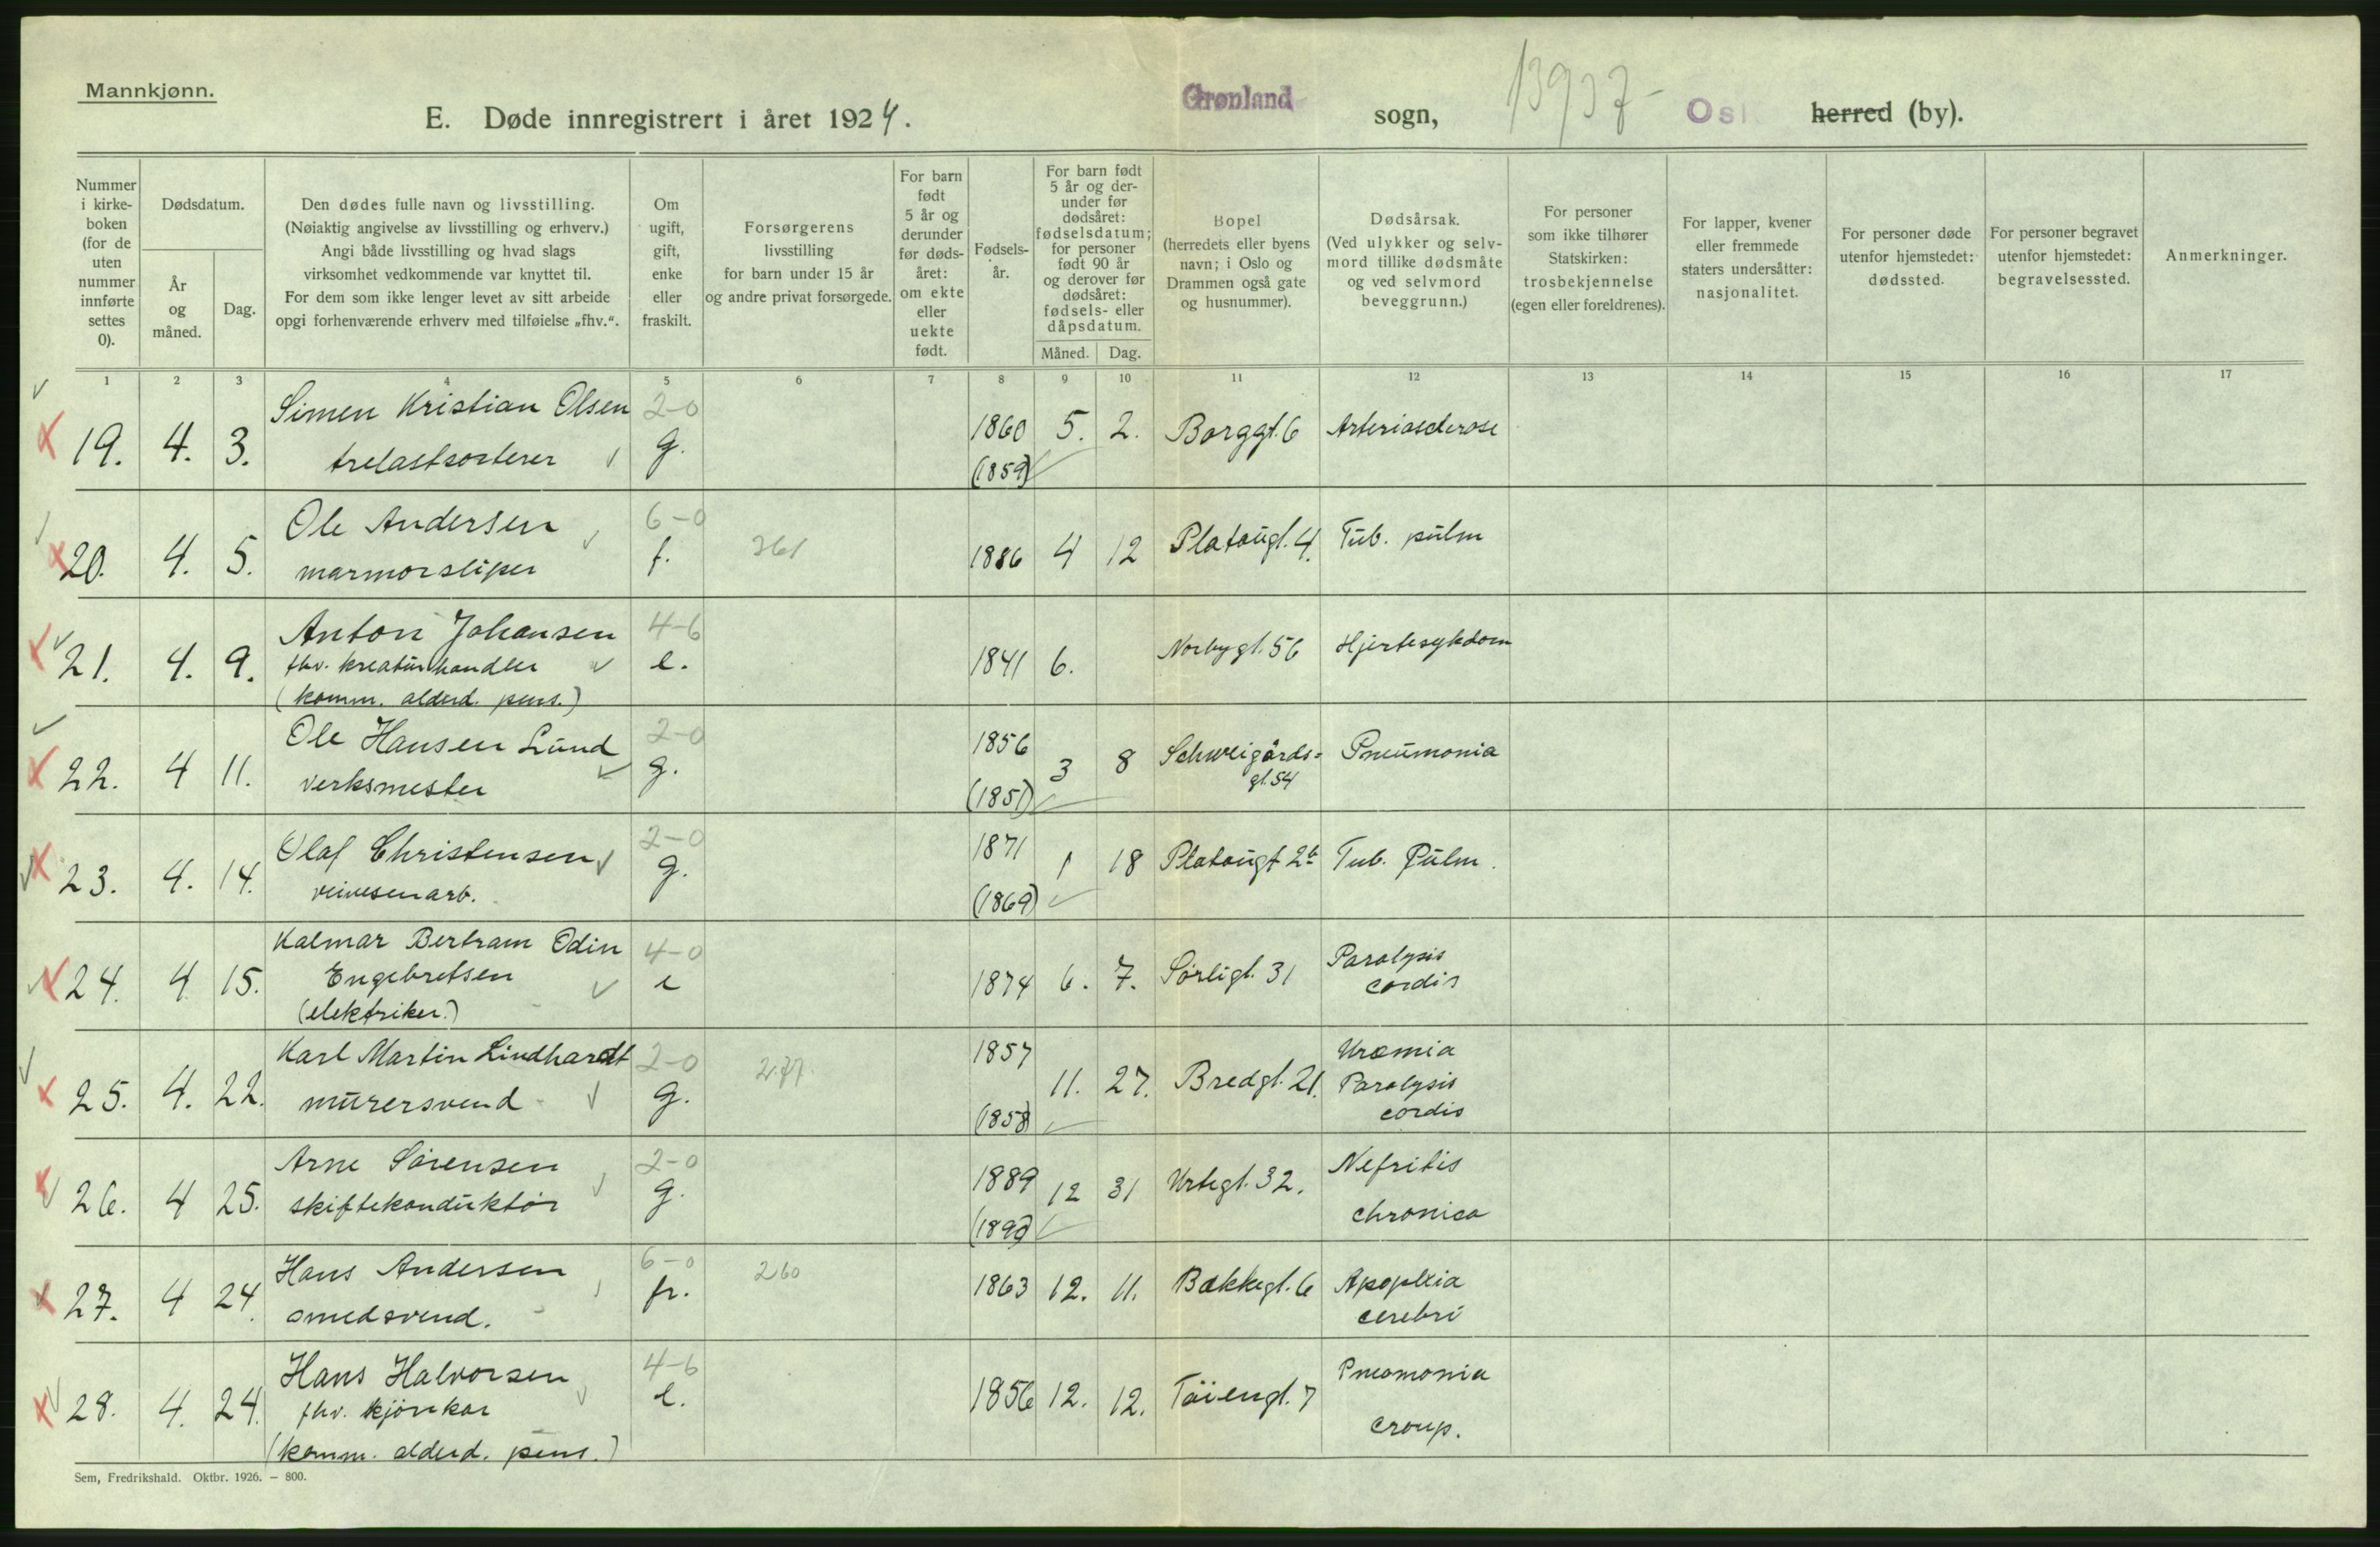 Mannkjønn.
E. Døde innregistrert i året 1924.
Grønland sogn,
13937-
Osl herred (by).
Nummer i kirke-boken (for de uten nummer innførte settes 0).
Dødsdatum.
År og måned.
Dag.
Den dødes fulle navn og livsstilling.
(Nøiaktig angivelse av livsstilling og erhverv.)
Angi både livsstilling og hvad slags
virksomhet vedkommende var knyttet til.
For dem som ikke lenger levet av sitt arbeide
opgi forhenværende erhverv med tilføielse „fhv.".
Om ugift, gift, enke eller fraskilt.
Forsørgerens livsstilling for barn under 15 år og andre privat forsørgede.
For barn født 5 år og derunder før døds-året: om ekte eller uekte født.
Fødsels-år.
For barn født 5 år og der-under før dødsåret: fødselsdatum; for personer født 90 år og derover før dødsåret: fødsels- eller dåpsdatum.
Måned. Dag.
Bopel (herredets eller byens navn; i Oslo og Drammen også gate og husnummer).
Dødsårsak. (Ved ulykker og selv-mord tillike dødsmåte og ved selvmord beveggrunn.)
For personer som ikke tilhører Statskirken: trosbekjennelse (egen eller foreldrenes).
For lapper, kvener eller fremmede staters undersåtter: nasjonalitet.
For personer døde utenfor hjemstedet: dødssted.
For personer begravet utenfor hjemstedet: begravelsessted.
Anmerkninger.
1 2 3 4 5 6 7 8 9 10 11 12 13 14 15 16 17
19. 4. 3. Simen Kristian Olsen 2-0 1860 5. 2. Borggt. 6 Arteriosclerose
trelastsorterer g. (1859)
20. 4. 5. Ole Andersen 6-0 261 1886 4 12 Platougt. 4. Tub. pulm
marmorsliper f.
21. 4. 9. Anton Johansen 4-6 1841 6. Norbygt. 56 Hjertesykdom
fhv. kreaturhandler e.
(komm. alderd. pens.)
22. 4 11. Ole Hansen Lund 2-0 1856 3 8 Schweigårds= Pneumonia
verksmester g. (1851) gt. 54
23. 4. 14. Olaf Christensen 2-0 1871 1 18 Platougt 2b Tub. Pulm.
veivesenarb. g. (1869)
24. 4 15. Kalmar Bertram Odin 4-0 1874 6. 7. Sørligt. 31 Paralysis
Engebretsen e cordis
(elektriker.)
25. 4. 22. Karl Martin Lindhardt 2-0 277. 1857 11. 27. Bredgt. 21. Uræmia
murersvend g. (1858) Paralysis
cordis
26. 4 25. Arne Sørensen 2-0 1889 12 31 Urtegt. 32. Nefritis
skiftekonduktør g. (1890) chronica
27. 4 24. Hans Andersen 6-0 260 1863 12. 11. Bakkegt. 6 Apoplexia
smedsvend. fr. cerebri
28. 4. 24. Hans Halvorsen 4-6 1856 12. 12. Tøiengt. 7 Pneomonia
fhv. kjørekar e. croup.
(komm. alderd. pens.)
Sem, Fredrikshald. Oktbr. 1926. – 800.